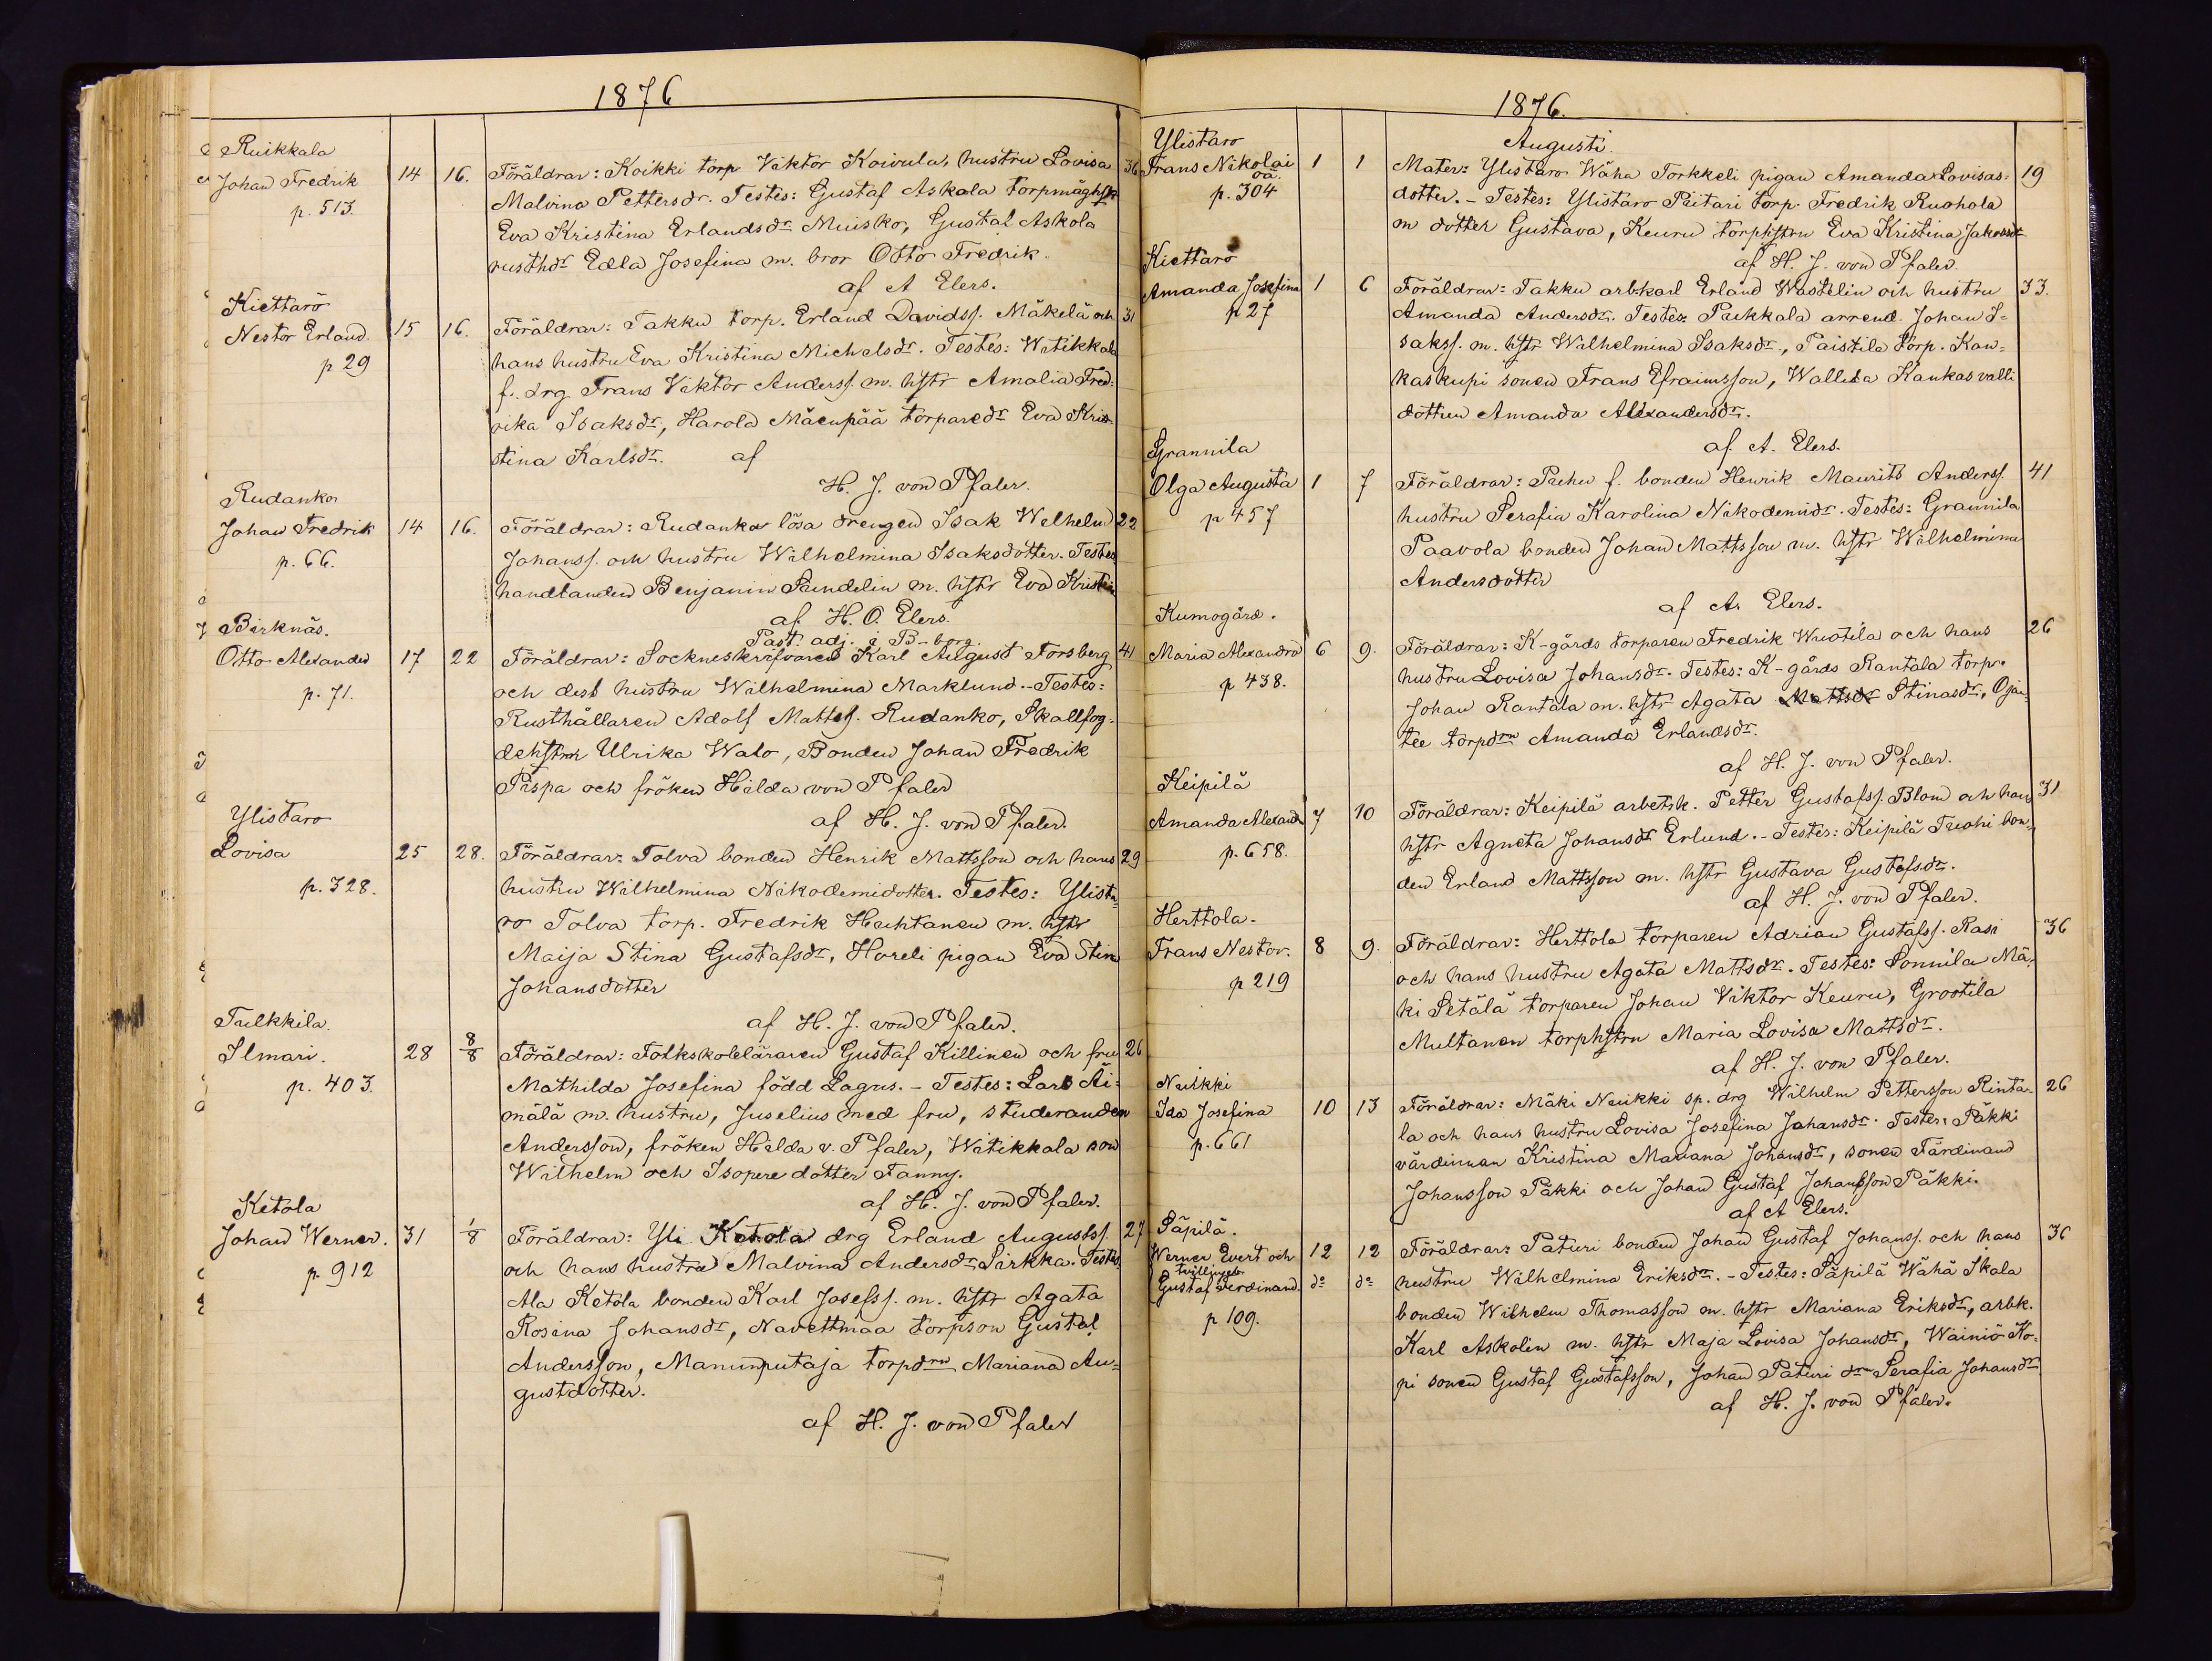 1876
Ruikkala
Johan Fredrik 14 16. Föräldrar: Koikki torp Viktor Koivula, hustru Lovisa 36
p. 513. Malvina Pettersdr. Testes: Gustaf Askola torpmåghstr
Eva Kristina Erlandsdr Muisko, Gustaf Askola
rusthdr Edla Josefina m. bror Otto Fredrik.
af A Elers.
Kiettarö
Nestor Erland. 15 16. Föräldrar: Takku torp. Erland Davidss. Mäkelä och 31
p 29 hans hustru Eva Kristina Michelsdr. Testes: Witikkala
f. drg Frans Viktor Anderss. m. hstr Amalia Fred-
rika Isaksdr, Harola Mäenpää torparedr Eva Kris-
stina Karlsdr. af
H. J. von Pfaler.
Rudanko
Johan Fredrik 14 16. Föräldrar: Rudanko lösa drengen Isak Wilhelm 22
p. 66. Johanss. och hustru Wilhelmina Isaksdotter. Testes
handlanden Benjamin Sundelin m. hstr Eva Kristin
af H. O. Elers.
Past. adj. i B-borg.
Birknäs.
Otto Alexander 17 22 Föräldrar: Sockneskrifvaren Karl August Forsberg 41
p. 71. och dess hustru Wilhelmina Marklund. - Testes:
Rusthållaren Adolf Mattss. Rudanko, Skallfog-
dehstrn Ulrika Walo, Bonden Johan Fredrik
Pispa och fröken Hilda von Pfaler
af H. J. von Pfaler.
Ylistaro
Lovisa 25 28. Föräldrar: Tolva bonden Henrik Mattsson och hans 29
p. 328. hustru Wilhelmina Nikodemidotter. Testes: Ylista-
ro Tolva torp. Fredrik Huhtanen m. hstr
Maija Stina Gustafsdr, Horeli pigan Eva Stina
Johansdotter
af H. J. von Pfaler.
Tulkkila.
Ilmari. 28 8/8 Föräldrar: Folkskoleläraren Gustaf Killinen och fru 26
p. 403. Mathilda Josefina född Lagus. - Testes: Lars Äi-
mälä m. hustru, Juselius med fru, studeranden
Andersson, fröken Hilda v. Pfaler, Witikkala son
Wilhelm och Isopere dotter Fanny.
af H. J. von Pfaler.
Ketola
Johan Werner. 31 1/8 Föräldrar: Yli Ketola drg Erland Augustss. 27
p. 912 och hans hustru Malvina Andersdr Sirkka. Testes.
Ala Ketola bonden Karl Josefss. m. hstr Agata
Rosina Johansdr, Navettmaa torpson Gustaf
Andersson, Manunputaja torpdrn Mariana Au-
gustdotter.
af H. J. von Pfaler
1876.
Augusti.
Ylistaro
Frans Nikolai oä. 1 1 Mater: Ylistaro Wäha Torkkeli pigan Amanda Lovisas- 19
p. 304 dotter. - Testes: Ylistaro Piitari torp. Fredrik Ruohola
m dotter Gustava, Keuru torphstru Eva Kristina Jakobsdr
af H. J. von Pfaler.
Kiettarö
Amanda Josefina 1 6 Föräldrar: Takku arb.karl Erland Wastelin och hustru 33.
p 27 Amanda Andersdr. Testes: Pukkala arrend. Johan I-
sakss. m. hstr Wilhelmina Isaksdr, Paistila torp. Kan-
kaskupi sonen Frans Efraimsson, Wallila Kankasvalli
dottren Amanda Alexandersdr.
af A. Elers.
Grannila
Olga Augusta 1 7 Föräldrar: Puhu f. bonden Henrik Maurits Anderss. 41
p 457 hustru Serafia Karolina Nikodemidr. Testes: Grannila
Paavola bonden Johan Mattsson m. hstr Wilhelmina
Andersdotter
af A. Elers.
Kumogård.
Maria Alexandra 6 9. Föräldrar: K-gårds torparen Fredrik Wuotila och hans 26
p 438. hustru Lovisa Johansdr. Testes: K-gårds Rantala torp.
Johan Rantala m. hstr Agata Mattsdr Stinasdr, Ojan-
tee torpdrn Amanda Erlandsdr.
af H. J. von Pfaler.
Keipilä
Amanda Alexand 7 10 Föräldrar: Keipilä arbetsk. Petter Gustafss. Blom och hans 31
p. 658. hstr Agneta Johansdr Erlund. - Testes: Keipilä Tuohi bon-
den Erland Mattsson m. hstr Gustava Gustafsdr.
af H. J. von Pfaler.
Herttola.
Frans Nestor. 8 9. Föräldrar: Herttola torparen Adrian Gustafss. Rasi 36
p 219 och hans hustru Agata Mattsdr. Testes: Sonnila Mä-
ki Setälä torparen Johan Viktor Keuru, Grootila
Multanen torphstru Maria Lovisa Mattsdr.
af H. J. von Pfaler.
Nuikki
Ida Josefina 10 13 Föräldrar: Mäki Nuikki sp. drg Wilhelm Pettersson Rinta- 26
p. 661 la och hans hustru Lovisa Josefina Johansdr. Testes: Päkki
värdinnan Kristina Mariana Johansdr, sonen Färdinand
Johansson Päkki och Johan Gustaf Johansson Päkki.
af A Elers.
Säpilä.
Werner Evert och 12 12 Föräldrar: Paturi bonden Johan Gustaf Johanss. och hans 36
tvillingar
Gustaf Ferdinand. do do hustru Wilhelmina Eriksdr. - Testes: Säpilä Wähä Skala
p 109. bonden Wilhelm Thomasson m. hstr Mariana Eriksdr, arbk.
Karl Askolin m. hstr Maja Lovisa Johansdr, Wainiö Ko-
pi sonen Gustaf Gustafsson, Johan Paturi drn Serafia Johansdr
af H. J. von Pfaler.